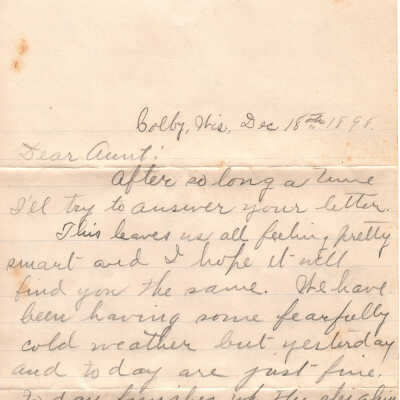 Colby, Wis, Dec 18th 1898.
Dear Aunt;
After so long a time
I'll try to answer your letter.
This leaves us all feeling pretty
smart and I hope it will
find you the same. We have
been having some fearfully
cold weather but yesterday
and to day are just fine.
To day finishes up the